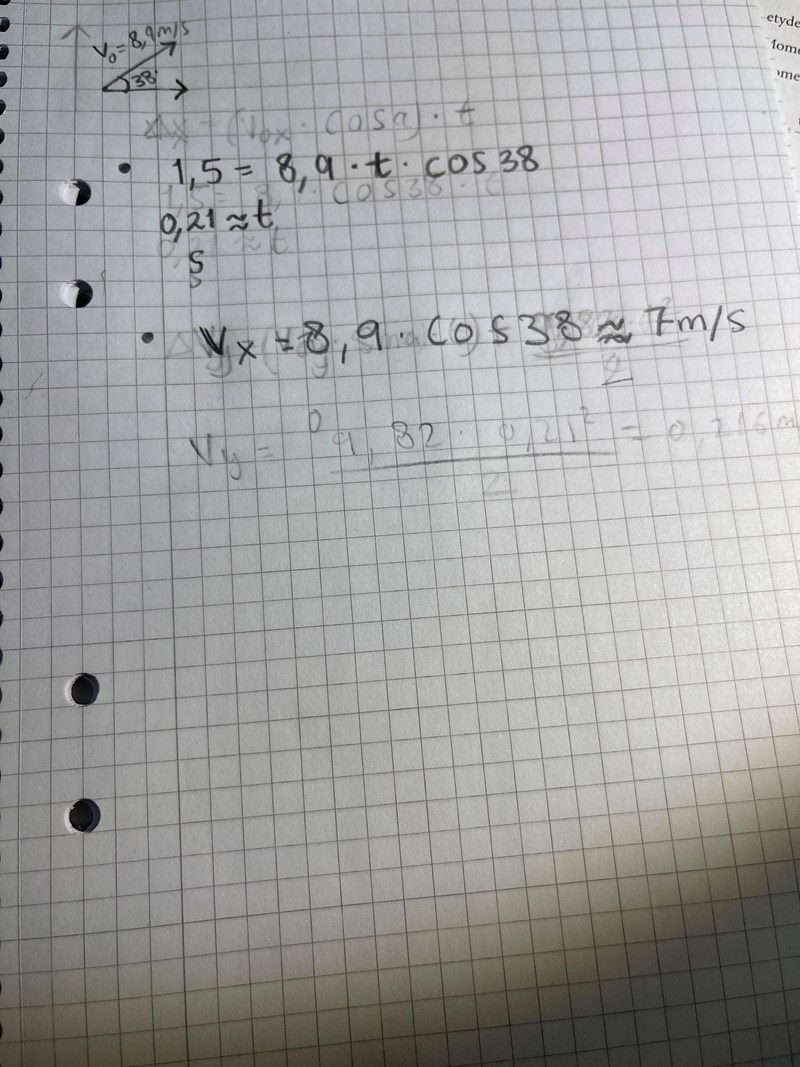 etyde
V₀ = 8,9 m/s
38°
Δx = (V₀ₓ · cosα) · t
1,5 = 8,9 · t · cos 38
0,21 ≈ t
s
Vₓ = 8,9 · cos 38 ≈ 7 m/s
2
Vy = 9,82 · 0,21² = 0,216 m
2